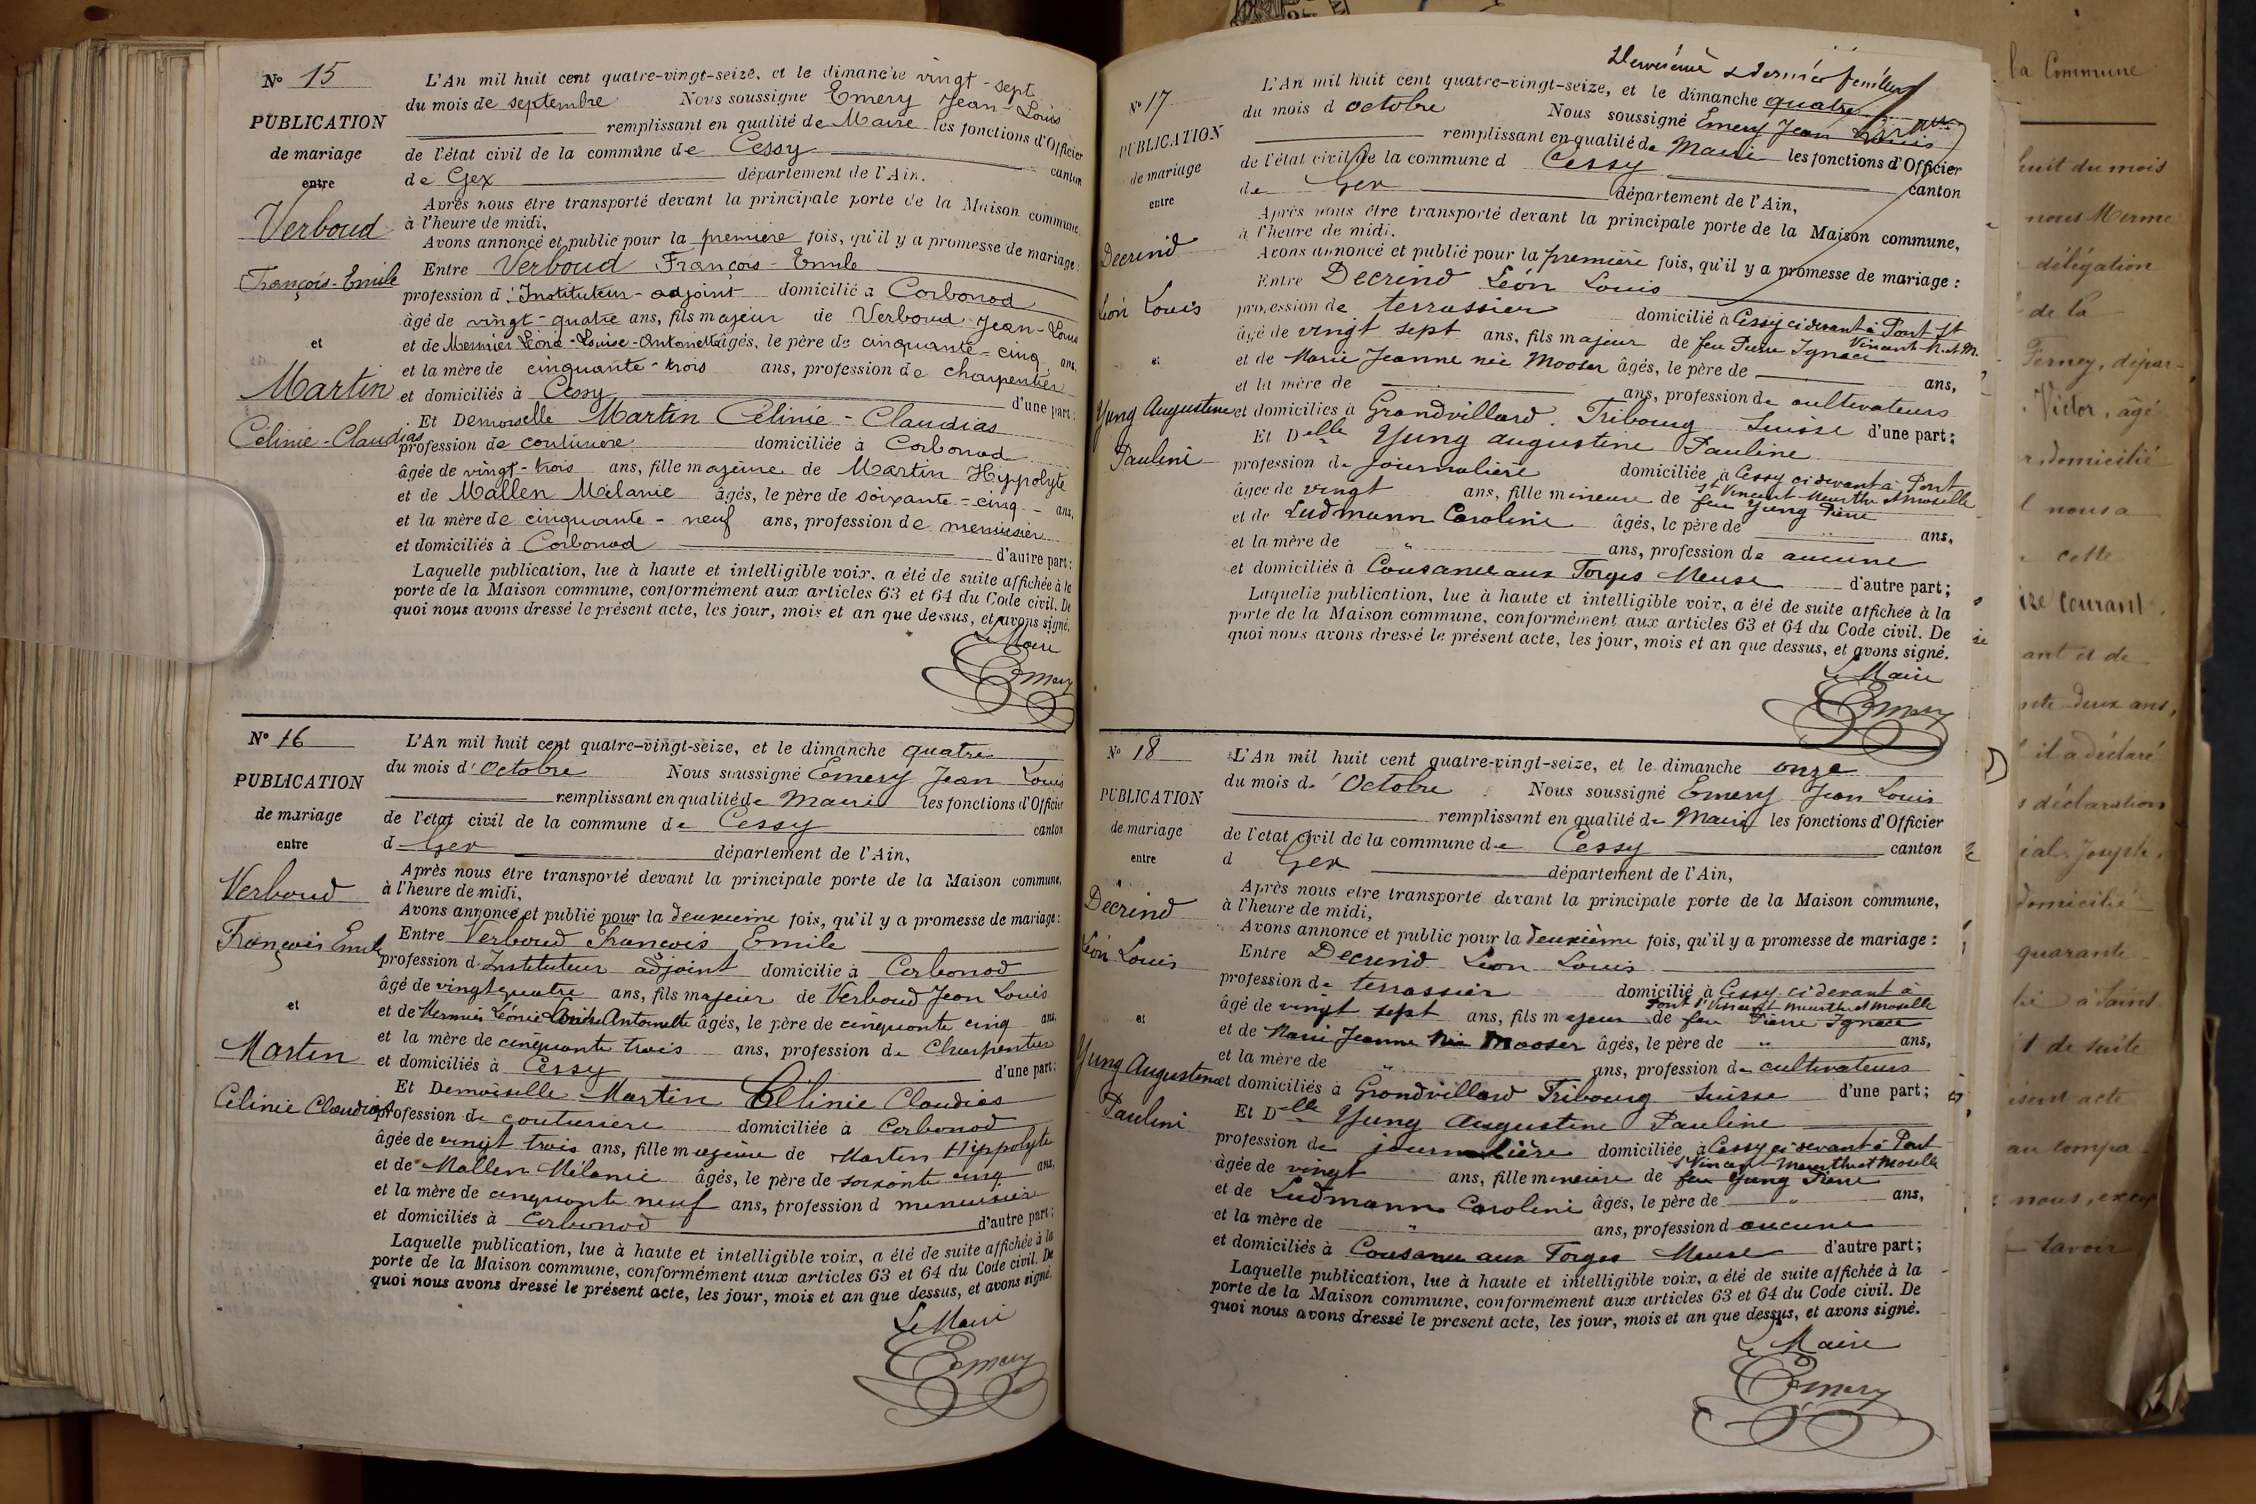 N° 15
PUBLICATION
de mariage
entre
Verboud
François-Emile
et
Martin
Célinie-Claudias
L'An mil huit cent quatre-vingt-seize, et le dimanche vingt-sept
du mois de septembre Nous soussigné Emery Jean-Louis
remplissant en qualité de Maire les fonctions d'Officier
de l'état civil de la commune de Cessy canton
de Gex département de l'Ain.
Après nous être transporté devant la principale porte de la Maison commune,
à l'heure de midi,
Avons annoncé et publié pour la première fois, qu'il y a promesse de mariage:
Entre Verboud François-Emile
profession d'Instituteur-adjoint domicilié à Corbonod
âgé de vingt-quatre ans, fils majeur de Verboud Jean-Louis
et de Mermier Léonie-Louise-Antoinette âgés, le père de cinquante-cinq ans,
et la mère de cinquante-trois ans, profession de charpentier
et domiciliés à Cessy d'une part:
Et Demoiselle Martin Célinie-Claudias
profession de couturière domiciliée à Corbonod
âgée de vingt-trois ans, fille majeure de Martin Hippolyte
et de Mallen Mélanie âgés, le père de soixante-cinq ans,
et la mère de cinquante-neuf ans, profession de menuisier
et domiciliés à Corbonod d'autre part:
Laquelle publication, lue à haute et intelligible voix, a été de suite affichée à la
porte de la Maison commune, conformément aux articles 63 et 64 du Code civil. De
quoi nous avons dressé le présent acte, les jour, mois et an que dessus, et avons signé.
Le Maire
Emery
N° 16
PUBLICATION
de mariage
entre
Verboud
François Emile
et
Martin
Célinie Claudias
L'An mil huit cent quatre-vingt-seize, et le dimanche quatre
du mois d'Octobre Nous soussigné Emery Jean Louis
remplissant en qualité de Maire les fonctions d'Officier
de l'état civil de la commune de Cessy canton
d Gex département de l'Ain,
Après nous être transporté devant la principale porte de la Maison commune,
à l'heure de midi,
Avons annoncé et publié pour la deuxième fois, qu'il y a promesse de mariage:
Entre Verboud François Emile
profession d'Instituteur adjoint domicilié à Corbonod
âgé de vingt quatre ans, fils majeur de Verboud Jean Louis
et de Mermier Léonie Louise Antoinette âgés, le père de cinquante cinq ans,
et la mère de cinquante trois ans, profession de Charpentier
et domiciliés à Cessy d'une part:
Et Demoiselle Martin Célinie Claudias
profession de couturière domiciliée à Corbonod
âgée de vingt trois ans, fille majeure de Martin Hippolyte
et de Mallen Mélanie âgés, le père de soixante cinq ans,
et la mère de cinquante neuf ans, profession d menuisier
et domiciliés à Corbonod d'autre part:
Laquelle publication, lue à haute et intelligible voix, a été de suite affichée à la
porte de la Maison commune, conformément aux articles 63 et 64 du Code civil. De
quoi nous avons dressé le présent acte, les jour, mois et an que dessus, et avons signé.
Le Maire
Emery
dernier feuillet
N° 17
PUBLICATION
de mariage
entre
Decrind
Léon Louis
et
Yung Augustine
Pauline
L'An mil huit cent quatre-vingt-seize, et le dimanche quatre
du mois d octobre Nous soussigné Emery Jean Louis
remplissant en qualité de Maire les fonctions d'Officier
de l'état civil de la commune d Cessy canton
de Gex département de l'Ain,
Après nous être transporté devant la principale porte de la Maison commune,
à l'heure de midi.
Avons annoncé et publié pour la première fois, qu'il y a promesse de mariage:
Entre Decrind Léon Louis
profession de terrassier domicilié à Cessy ci devant à Pont St
Vincent M. et M.
âgé de vingt sept ans, fils majeur de feu Pierre Ignace
et de Marie Jeanne née Mooser âgés, le père de ans,
et la mère de ans, profession de cultivateurs
et domiciliés à Grandvillard. Fribourg Suisse d'une part:
Et Delle Yung Augustine Pauline
profession de journalière domiciliée à Cessy ci devant à Pont
St Vincent Meurthe et Moselle
âgée de vingt ans, fille mineure de feu Yung Pierre
et de Ludmann Caroline âgés, le père de ans,
et la mère de " ans, profession de aucune
et domiciliés à Cousance aux Forges Meuse d'autre part;
Laquelle publication, lue à haute et intelligible voix, a été de suite affichée à la
porte de la Maison commune, conformément aux articles 63 et 64 du Code civil. De
quoi nous avons dressé le présent acte, les jour, mois et an que dessus, et avons signé.
Le Maire
Emery
N° 18
PUBLICATION
de mariage
entre
Decrind
Léon Louis
et
Yung Augustine
Pauline
L'An mil huit cent quatre-vingt-seize, et le dimanche onze
du mois d'Octobre Nous soussigné Emery Jean Louis
remplissant en qualité de Maire les fonctions d'Officier
de l'état civil de la commune de Cessy canton
d Gex département de l'Ain,
Après nous être transporté devant la principale porte de la Maison commune,
à l'heure de midi,
Avons annoncé et publié pour la deuxième fois, qu'il y a promesse de mariage:
Entre Decrind Léon Louis
profession de terrassier domicilié à Cessy ci devant à
Pont St Vincent Meurthe et Moselle
âgé de vingt sept ans, fils majeur de feu Pierre Ignace
et de Marie Jeanne née Mooser âgés, le père de " ans,
et la mère de " ans, profession de cultivateurs
et domiciliés à Grandvillard Fribourg Suisse d'une part;
Et Delle Yung Augustine Pauline
profession de journalière domiciliée à Cessy ci devant à Pont
St Vincent Meurthe et Moselle
âgée de vingt ans, fille mineure de feu Yung Pierre
et de Ludmann Caroline âgés, le père de " ans,
et la mère de " ans, profession d aucune
et domiciliés à Cousance aux Forges Meuse d'autre part;
Laquelle publication, lue à haute et intelligible voix, a été de suite affichée à la
porte de la Maison commune, conformément aux articles 63 et 64 du Code civil. De
quoi nous avons dressé le présent acte, les jour, mois et an que dessus, et avons signé.
Le Maire
Emery
la Commune
huit du mois
nous Merme
délégation
de la
Ferney, dépar-
Victor, âgé
domicilié
nous a
cette
courant,
ant et de
nte deux ans,
il a déclaré
déclaration
Joseph,
domicilié
quarante
à Saint
t de suite
acte
au compa
nous, excep
savoir